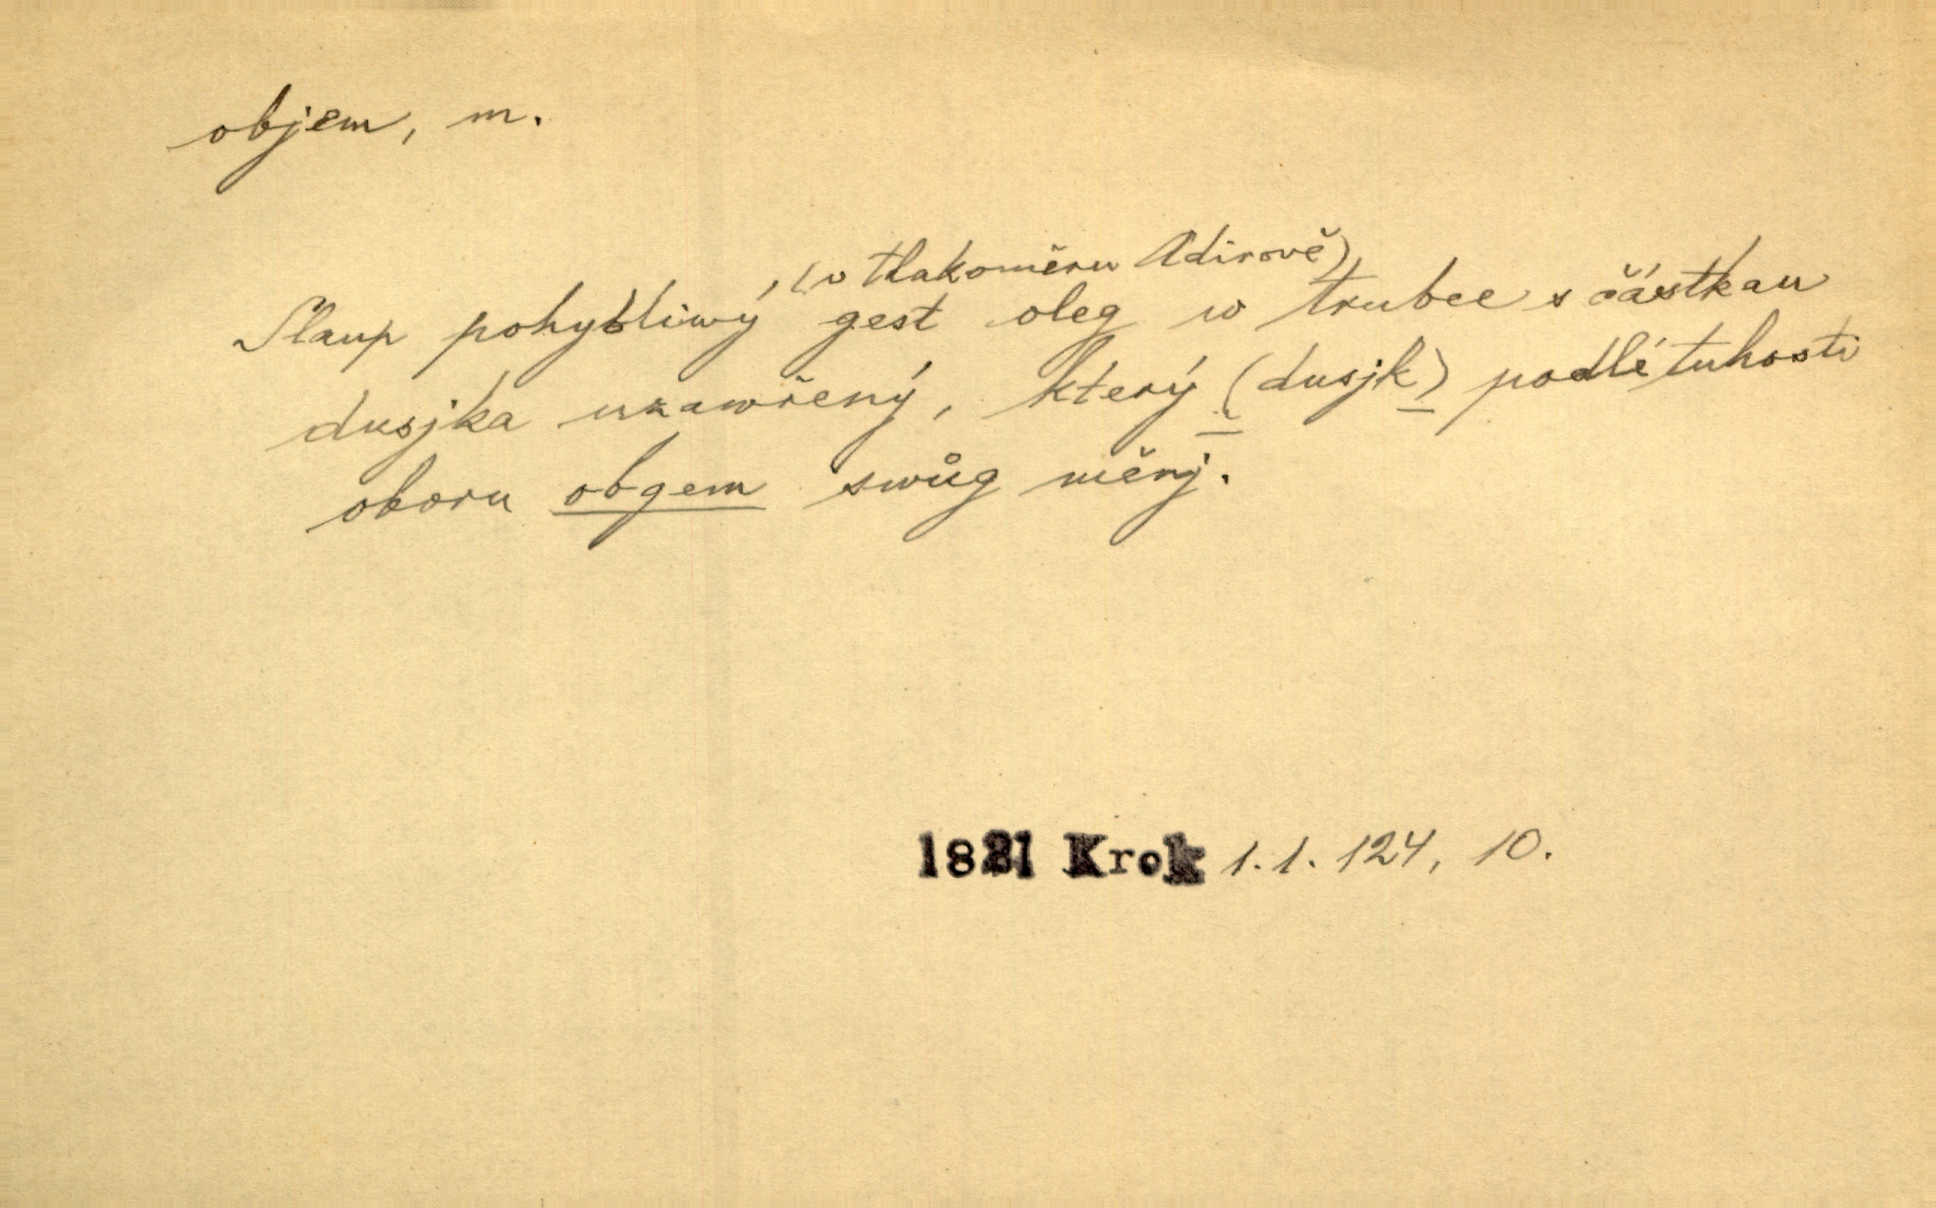 objem, m.
(w tlakoměru Adirově)
Slaup pohybliwý, gest oleg w trubce s částkau
dusjka uzawřený, který (dusjk) podlé tuhosti
oboru obgem swůg měnj.
1821 Krok 1.1. 124, 10.